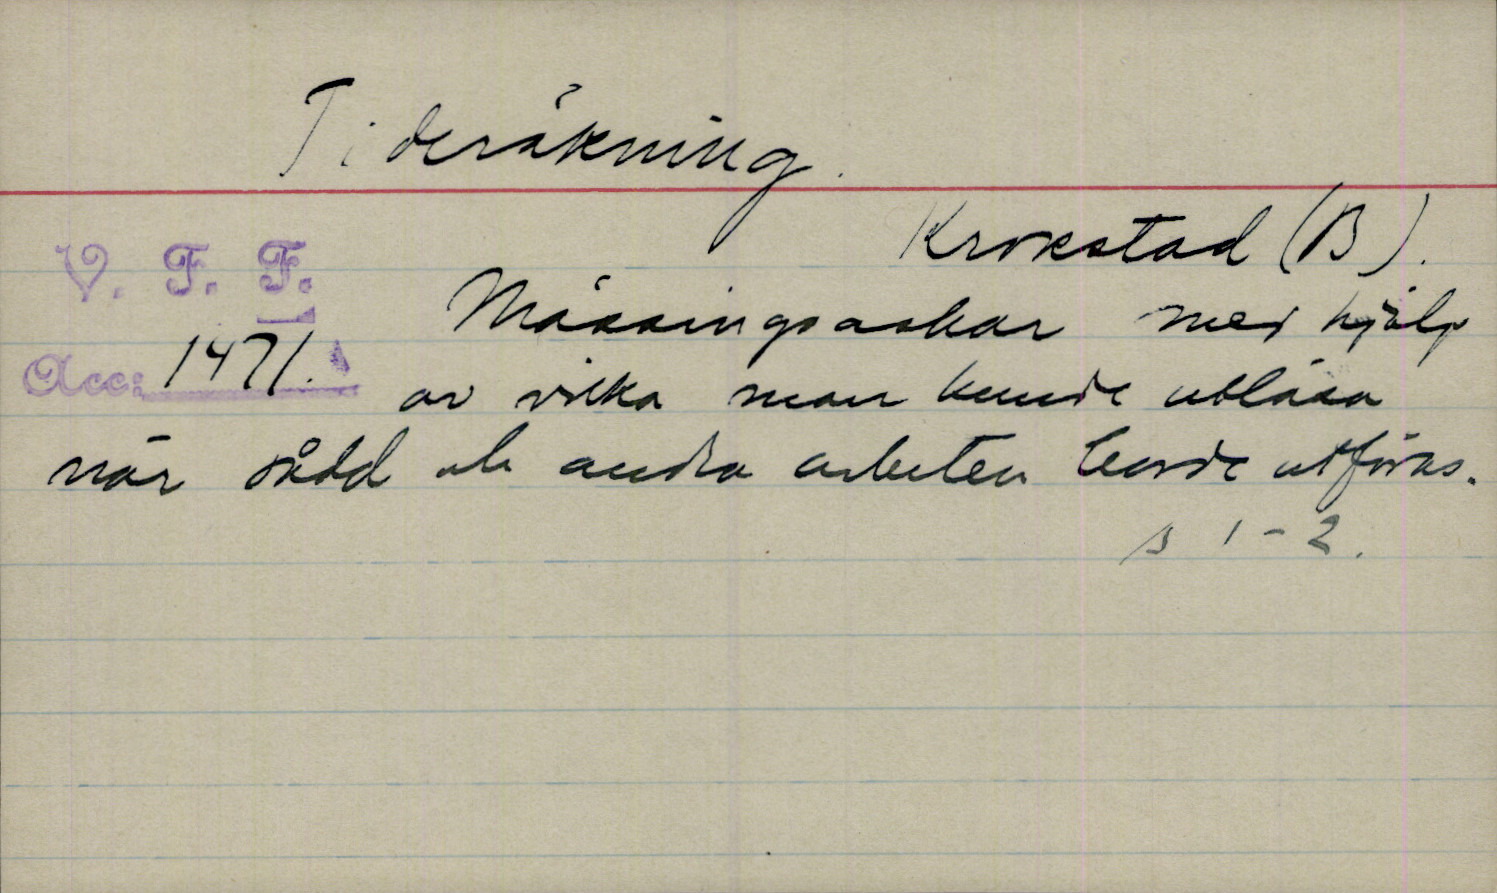 Tideräkning.
Krokstad (B).
V. F. F.
Mässingsaskar med hjälp
Acc: 1471.
av vilka man kunde utläsa
när sådd och andra arbeten borde utföras.
s 1-2.